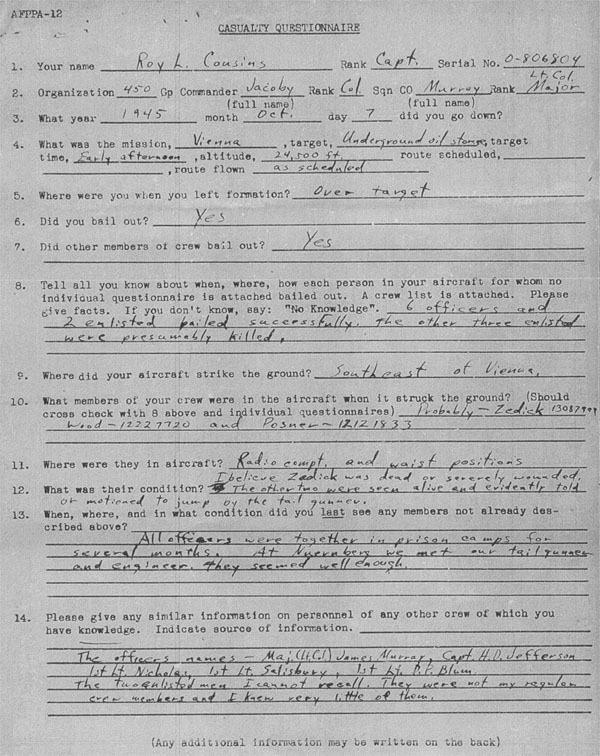 AFPPA-12
CASUALTY QUESTIONNAIRE
1. Your name Roy L. Cousins Rank Capt. Serial No. 0-806804
Lt. Col.
2. Organization 450 Gp Commander Jacoby Rank Col. Sqn CO Murray Rank Major
(full name) (full name)
3. What year 1945 month Oct. day 7 did you go down?
4. What was the mission, Vienna, target, Underground oil storage, target
time, Early afternoon, altitude, 24,500 ft. route scheduled,
, route flown as scheduled
5. Where were you when you left formation? Over target
6. Did you bail out? Yes
7. Did other members of crew bail out? Yes
8. Tell all you know about when, where, how each person in your aircraft for whom no
individual questionnaire is attached bailed out. A crew list is attached. Please
give facts. If you don't know, say: "No Knowledge". 6 officers and
2 enlisted bailed successfully. The other three enlisted
were presumably killed.
9. Where did your aircraft strike the ground? Southeast of Vienna.
10. What members of your crew were in the aircraft when it struck the ground? (Should
cross check with 8 above and individual questionnaires) Probably - Zedick
Wood - 12227720 and Posner - 12121833
11. Where were they in aircraft? Radio compt. and waist positions
I believe Zedick was dead or severely wounded.
12. What was their condition? The other two were seen alive and evidently told
or motioned to jump by the tail gunner.
13. When, where, and in what condition did you last see any members not already des-
cribed above?
All officers were together in prison camps for
several months. At Nuernberg we met our tail gunner
and engineer. They seemed well enough.
14. Please give any similar information on personnel of any other crew of which you
have knowledge. Indicate source of information.
The officers names - Maj (Lt. Col) James Murray, Capt. H.D. Jefferson
1st Lt. Nicholas, 1st Lt. Salisbury, 1st Lt. P.F. Blum
The two enlisted men I cannot recall. They were not my regular
crew members and I knew very little of them.
(Any additional information may be written on the back)